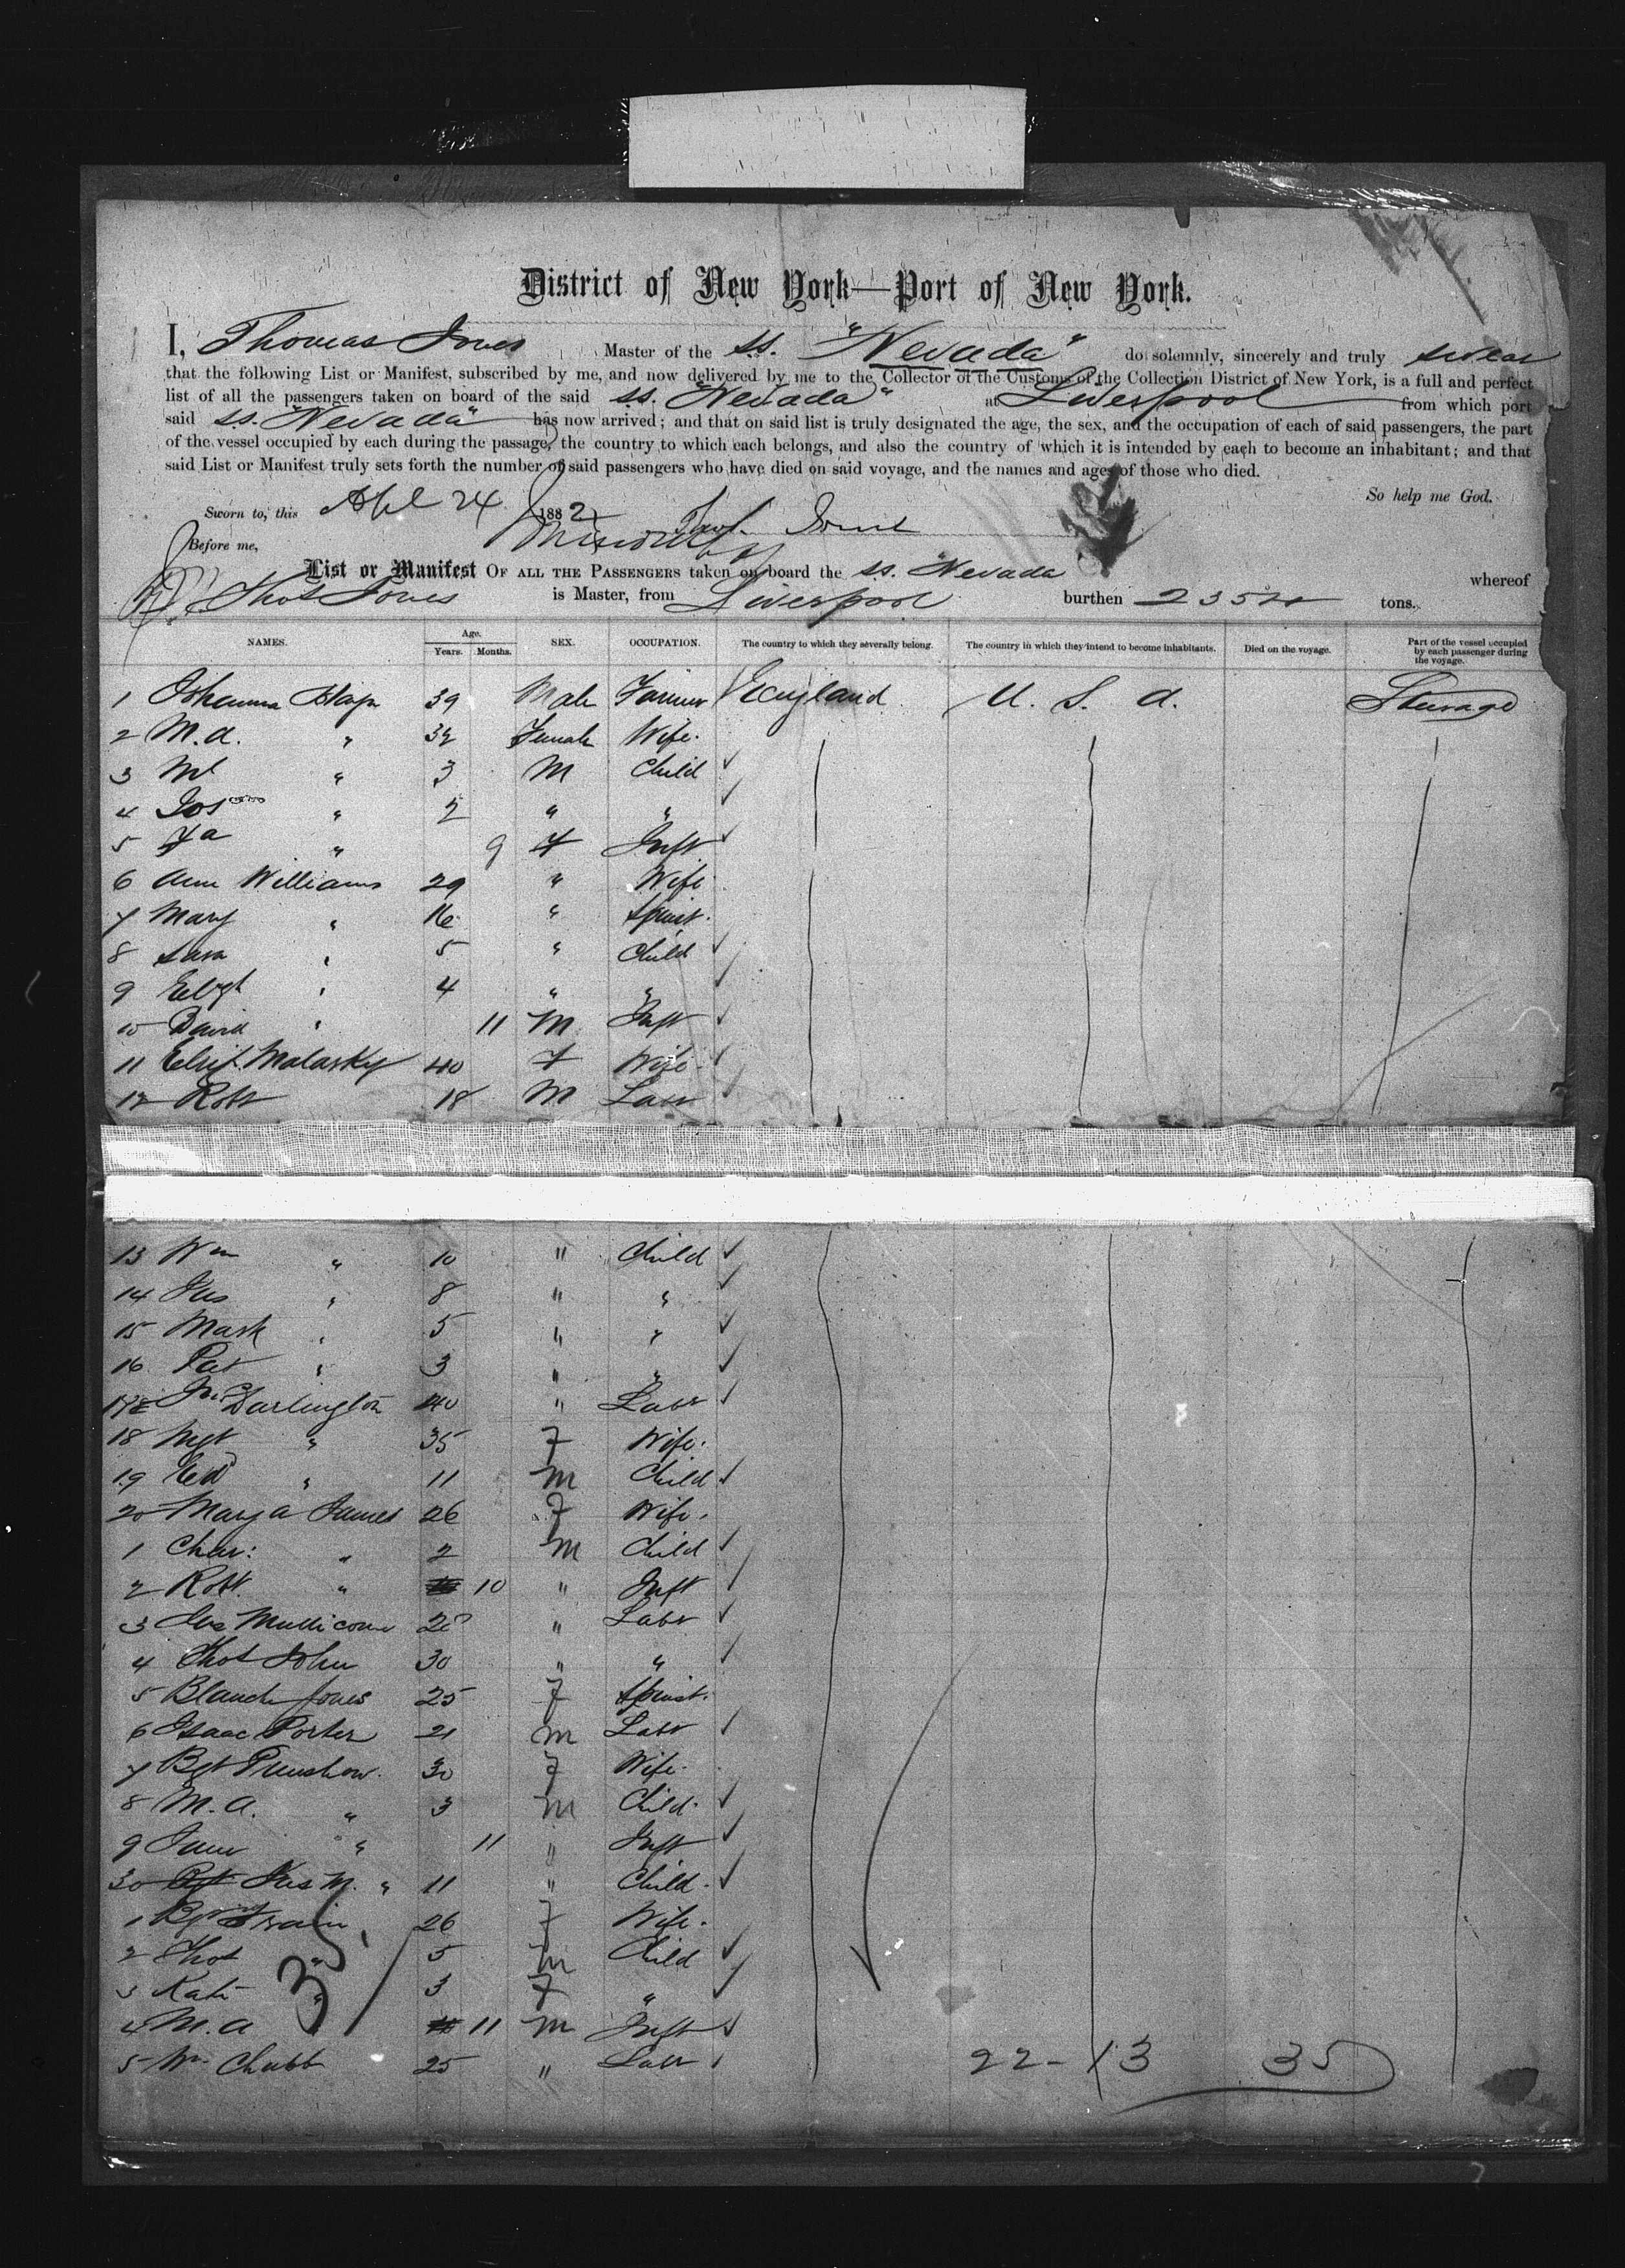 District of New York—Port of New York.
I, Thomas Jones Master of the ss. "Nevada" do solemnly, sincerely and truly swear
that the following List or Manifest, subscribed by me, and now delivered by me to the Collector of the Customs of the Collection District of New York, is a full and perfect
list of all the passengers taken on board of the said ss. "Nevada" at Liverpool from which port
said ss. "Nevada" has now arrived; and that on said list is truly designated the age, the sex, and the occupation of each of said passengers, the part
of the vessel occupied by each during the passage, the country to which each belongs, and also the country of which it is intended by each to become an inhabitant; and that
said List or Manifest truly sets forth the number of said passengers who have died on said voyage, and the names and ages of those who died.
So help me God.
Sworn to, this Apl 24 1882
Before me,
List or Manifest OF ALL THE PASSENGERS taken on board the ss. "Nevada whereof
Thos Jones is Master, from Liverpool burthen tons.
NAMES. Age. Years. Months. SEX. OCCUPATION. The country to which they severally belong. The country in which they intend to become inhabitants. Died on the voyage. Part of the vessel occupied by each passenger during the voyage.
1 39 Male Farmer England U. S. A. Steerage
2 M. A. " 32 Female Wife.
3 " 3 M Child ✓
4 Jos " 2 " " ✓
5 " 9 F Inft ✓
6 Ann Williams 29 " Wife.
7 Mary " 16 " Spinst.
8 Sara " 5 " Child ✓
9 " 4 " " ✓
10 David " 11 M Inft ✓
11 Malarky 40 F Wife
12 Robt 18 M Labr
13 Wm " 10 " Child ✓
14 Jas " 8 " " ✓
15 Mark " 5 " " ✓
16 Pat " 3 " " ✓
17 Darlington 40 " Labr ✓
18 Mgt " 35 F Wife.
19 Ed " 11 M Child ✓
20 Mary A James 26 F Wife.
1 Chas: " 2 M Child ✓
2 Robt. " 10 " Inft ✓
3 " Labr ✓
4 Thos John 30 " " ✓
5 Blanch Jones 25 F Spinst.
6 Isaac Porter 21 M Labr ✓
7 Bgt 30 F Wife.
8 M. A. " 3 M Child. ✓
9 " 11 " Inft ✓
30 Jas M. " 11 " Child. ✓
1 26 F Wife.
2 Thos " 5 M Child ✓
3 Kate " 3 F " ✓
4 M. A 11 M Inft ✓
5 Wm Chubb 25 " Labr
35
22 - 13 35